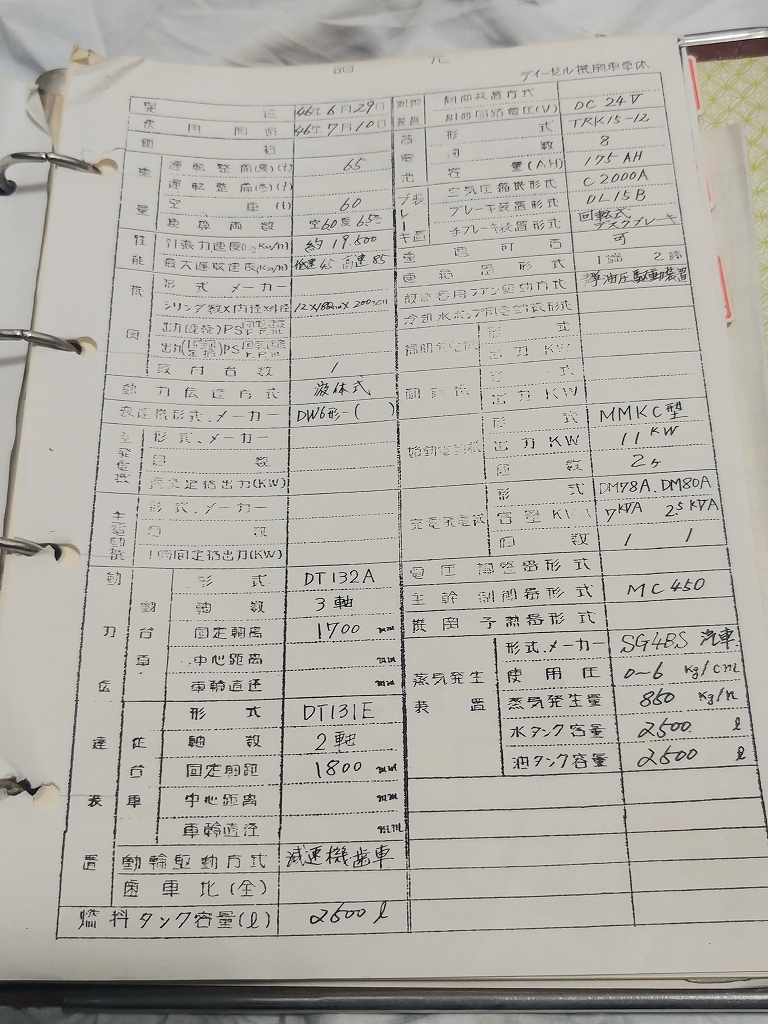 諸元
ディーゼル機関車車体
製造 46年6月29日
使用開始 46年7月10日
価格
重量 運転整備(夏)(t) 65
運転整備(冬)(t)
空車(t) 60
換算両数 空60度65
性能 引張力速度 約19.500
最大運転速度 低速45 高速85
機関 形式メーカー
シリンダ数×内径×行程 12×180mm×200mm
出力(連続)PS
出力 PS
取付台数 1
動力伝達方式 液体式
変速機形式、メーカー DW6形-( )
主発電機 形式、メーカー
個数
定格出力(KW)
主電動機 形式、メーカー
個数
1時間定格出力(KW)
動力伝達装置 動台車 形式 DT132A
軸数 3軸
固定軸距離 1700 mm
中心距離 mm
車輪直径 mm
従台車 形式 DT131E
軸数 2軸
固定軸距 1800 mm
中心距離 mm
車輪直径 mm
動輪駆動方式 減速機歯車
歯車比(全)
燃料タンク容量(l) 2500 l
制御装置 制御装置方式
制御回路電圧(V) DC 24V
蓄電池 形式 TRK15-12
個数 8
容量(AH) 175AH
ブレーキ装置 空気圧縮機形式 C2000A
ブレーキ装置形式 DL15B
手ブレーキ装置形式 回転式
重連可否 可
運転台形式 1端 2端
放熱器用ファン駆動方式 静油圧駆動装置
冷却水ポンプ用電動機形式
補助発電機 形式
出力KW
電動機 形式
出力KW
始動電動機 形式 MMKC型
出力KW 11KW
個数 2ケ
充電発電機 形式 DM78A、DM80A
容量KVA 7KVA 25KVA
個数 1 1
電圧調整器形式
主幹制御器形式 MC450
機関予熱器形式
蒸気発生装置 形式、メーカー SG4BS 汽車
使用圧 0-6 Kg/cm
蒸気発生量 850 Kg/h
水タンク容量 2500 l
油タンク容量 2500 l